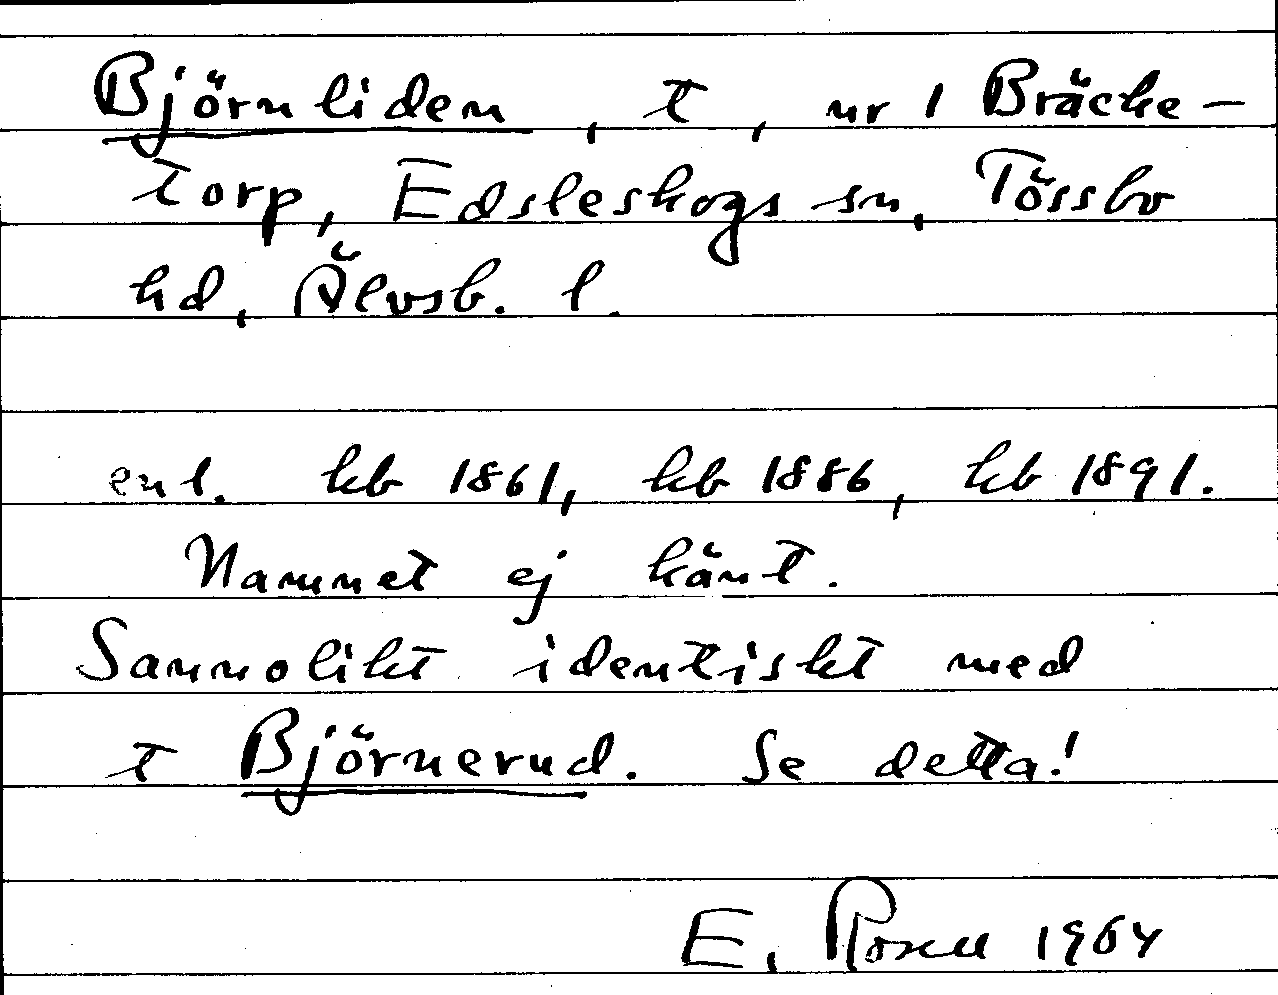 Björnliden, t, nr 1 Bräcke-
torp, Edsleskogs sn, Tössbo
hd, Älvsb. l.
enl. kb 1861, kb 1886, kb 1891.
Namnet ej känt.
Sannolikt identiskt med
t Björnerud. Se detta!
E. Rosell 1964